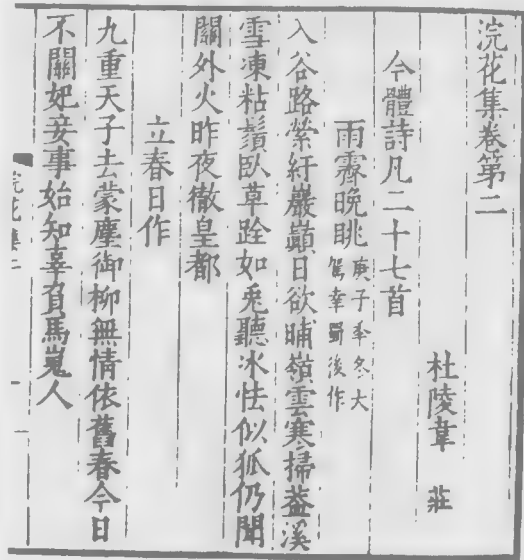 浣花集卷第二
杜陵韋莊
今體詩凡二十七首
雨霽晚眺庚子年冬大
駕幸蜀後作
入谷路縈紆巖巔日欲晡嶺雲寒掃蓋溪
雪凍粘鬚臥草跧如兎聽冰怯似狐仍聞
關外火昨夜徹皇都
立春日作
九重天子去蒙塵御柳無情依舊春今日
不關妃妾事始知辜負馬嵬人
浣花集二
一